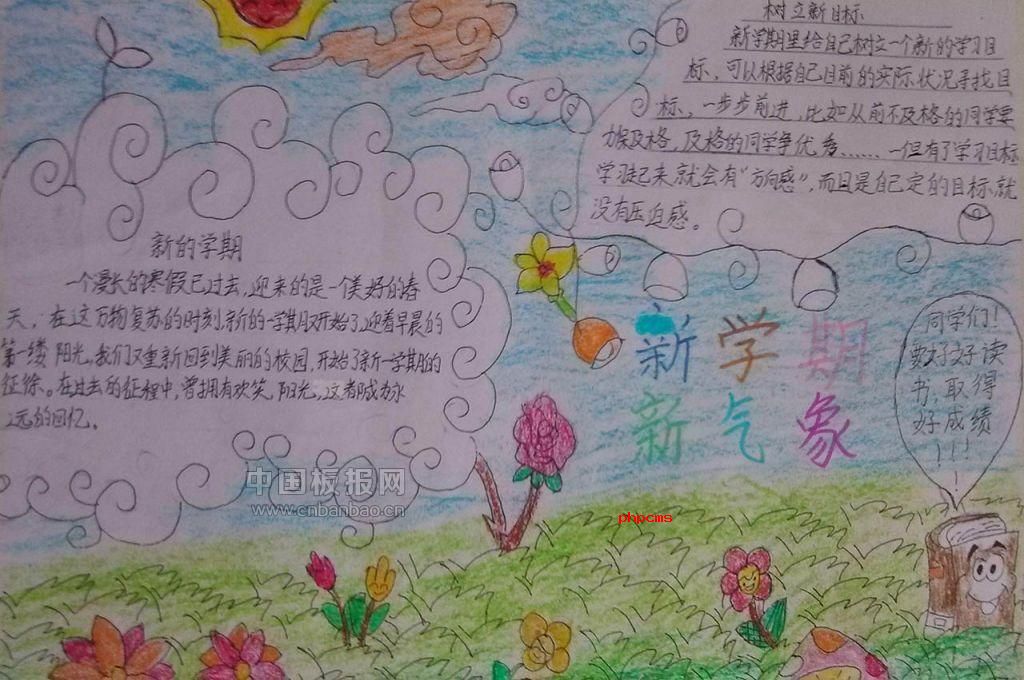 新的学期
一个漫长的寒假已过去,迎来的是一个美好的春
天,在这万物复苏的时刻,新的一学期又开始了,迎着早晨的
第一缕阳光,我们又重新回到美丽的校园,开始了新一学期的
征途。在过去的征程中,曾拥有欢笑,阳光,这都成为永
远的回忆。
树立新目标
新学期里给自己树立一个新的学习目
标,可以根据自己目前的实际状况寻找目
标,一步步前进,比如从前不及格的同学要
力保及格,及格的同学争优秀……一但有了学习目标
学习起来就会有“方向感”,而且是自己定的目标,就
没有压迫感。
新学期
新气象
同学们!
要好好读
书,取得
好成绩
!!!
中国板报网
www.cnbanbao.cn
phpcms